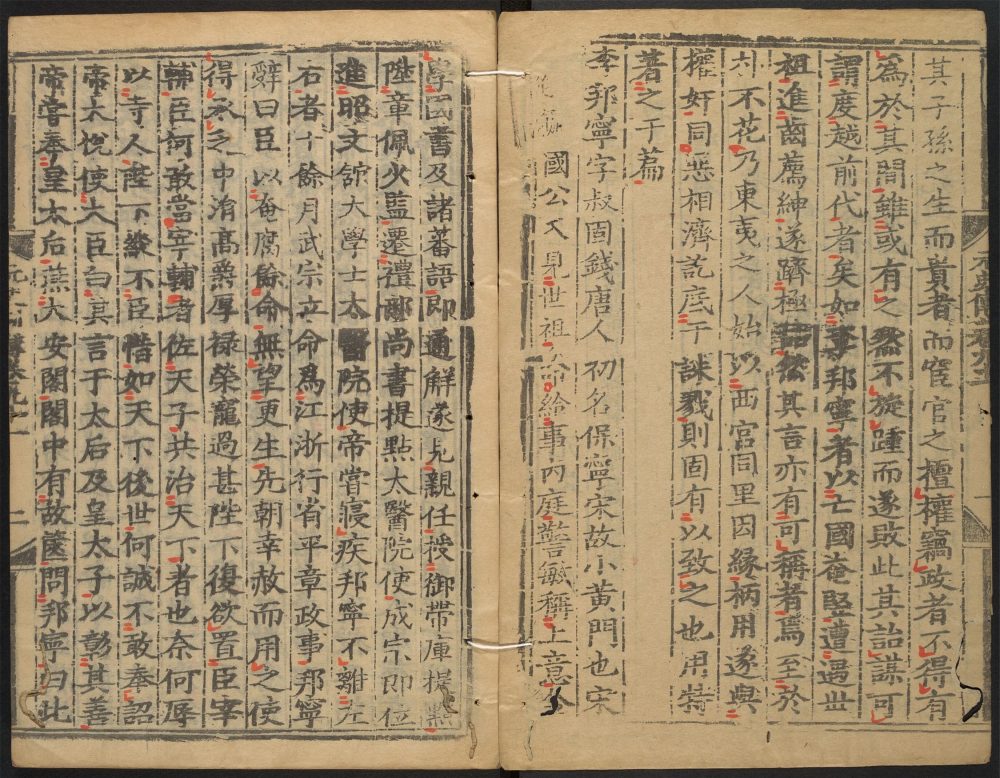 其子孫之生而貴者而宦官之檀權竊政者不得有
為於其間雖或有之然不旋踵而遂敗此其詒謀可
謂度越前代者矣如李邦寧者以亡國奄竪遭遇世
祖進齒薦紳遂躋極品然其言亦有可稱者焉至於
朴不花乃東夷之人始以西宮同里因緣柄用遂與
權奸同惡相濟訖底于誅戮則固有以致之也用特
著之于篇
李邦寧字叔固錢唐人初名保寧宋故小黃門也宋
國公入見世祖命給事內庭警敏稱上意令
學國書及諸蕃語即通解遂見親任授御帶庫提點
陞章佩少監遷禮部尚書提點大醫院使成宗即位
進昭文館大學士太醫院使帝嘗寢疾邦寧不離左
右者十餘月武宗立命為江浙行省平章政事邦寧
辭曰臣以奄腐餘命無望更生先朝幸赦而用之使
得承乏中涓高爵厚祿榮寵過甚陛下復欲置臣宰
輔臣何敢當宰輔者佐天子共治天下者也奈何辱
以寺人陛下縱不臣惜如天下後世何誠不敢奉詔
帝大悅使大臣白其言于太后及皇太子以彰其善
帝嘗奉皇太后燕大安閣閣中有故篋問邦寧曰此